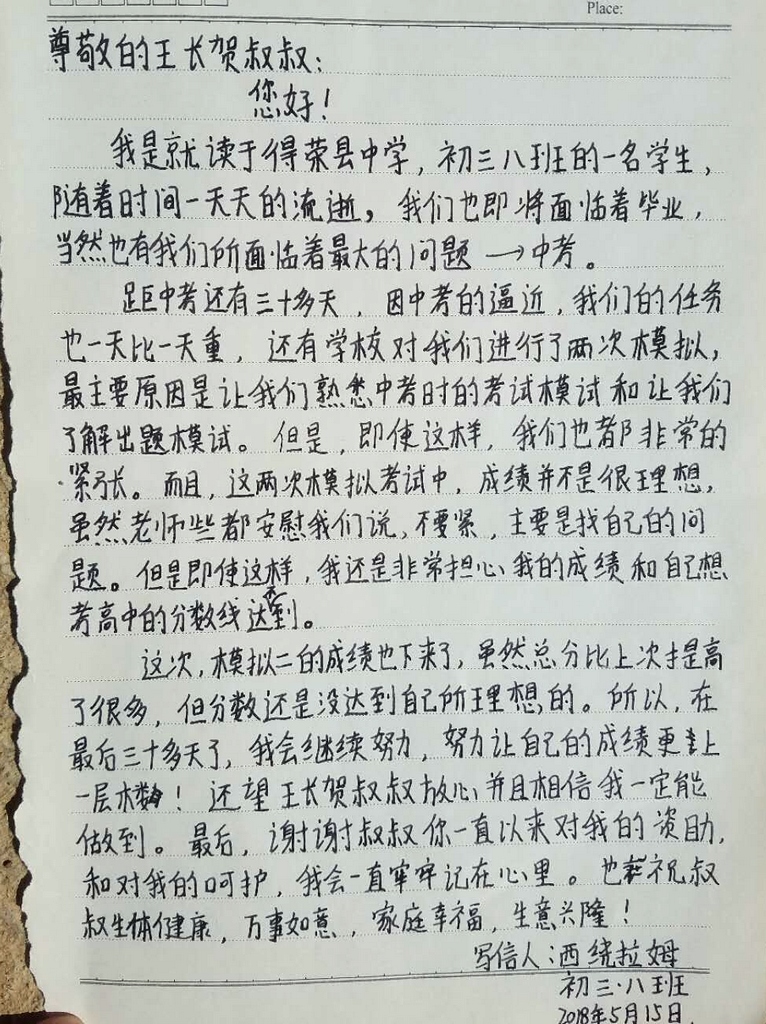 Place:
尊敬的王长贺叔叔:
您好!
我是就读于得荣县中学,初三八班的一名学生,
随着时间一天天的流逝,我们也即将面临着毕业,
当然也有我们所面临着最大的问题→中考。
距中考还有三十多天,因中考的逼近,我们的任务
也一天比一天重,还有学校对我们进行了两次模拟,
最主要原因是让我们熟悉中考时的考试模试和让我们
了解出题模试。但是,即使这样,我们也都非常的
紧张。而且,这两次模拟考试中,成绩并不是很理想,
虽然老师些都安慰我们说,不要紧,主要是找自己的问
题。但是即使这样,我还是非常担心我的成绩和自己想
考高中的分数线达不到。
这次,模拟二的成绩也下来了,虽然总分比上次提高
了很多,但分数还是没达到自己所理想的。所以,在
最后三十多天了,我会继续努力,努力让自己的成绩更上
一层楼!还望王长贺叔叔放心并且相信我一定能
做到。最后,谢谢叔叔你一直以来对我的资助,
和对我的呵护,我会一直牢牢记在心里。也祝叔
叔生体健康,万事如意,家庭幸福,生意兴隆!
写信人:西绕拉姆
初三·八班
2018年5月15日.